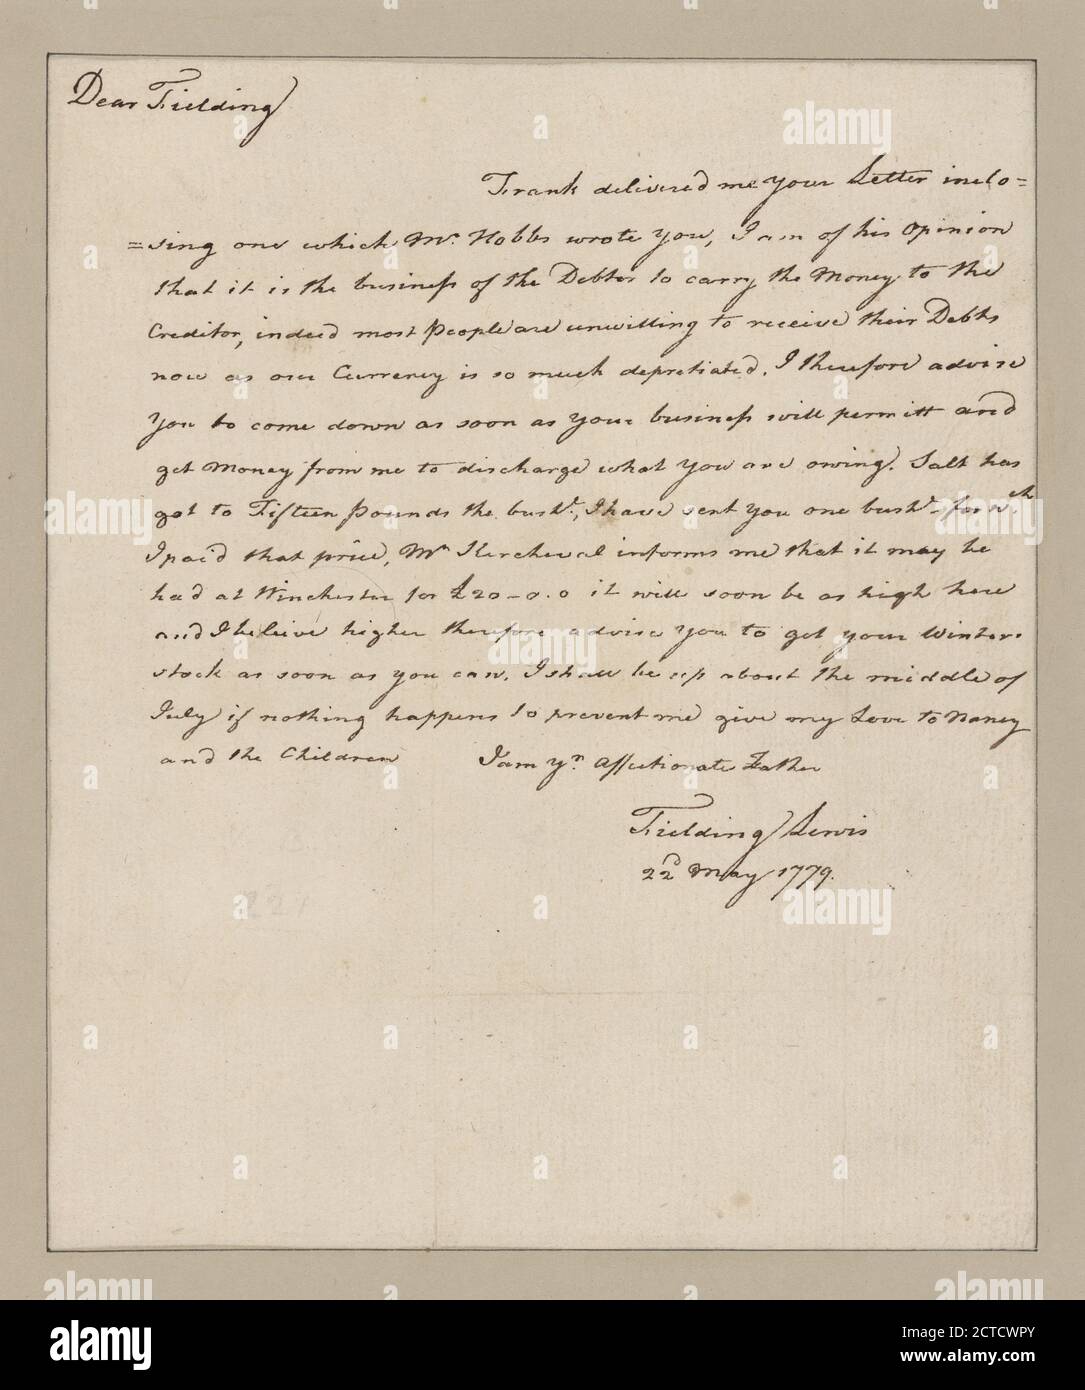 Dear Fielding
Frank delivered me your Letter inclo=
=sing one which Mr. Hobbs wrote you, I am of his Opinion
that it is the business of the Debter to carry the Money to the
Creditor, indeed most People are unwilling to receive their Debts
now as our Currency is so much depretiated. I therefore advise
You to come down as soon as your business will permitt and
get Money from me to discharge what you are owing. Salt has
got to Fifteen Pounds the bushl., I have sent you one bushl. for wch
I paid that price, Mr Kercheval informs me that it may be
had at Winchester for £20-0.0 it will soon be as high here
and I beleive higher therefore advise you to get your Winter
stock as soon as you can. I shall be up about the middle of
July if nothing happens to prevent me give my Love to Nancy
and the Children I am yr. Affectionate Father
Fielding Lewis
22d May 1779.
alamy
alamy
Image ID: 2CTCWPY
www.alamy.com